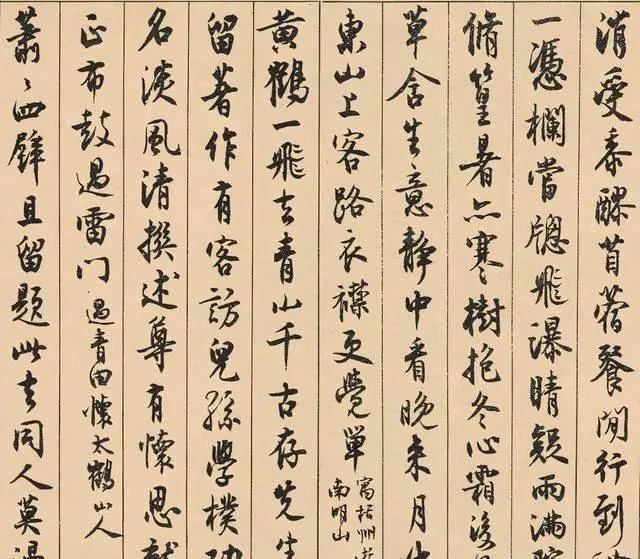 消受黍醪苜蓿餐閒行到
一憑欄當牕飛瀑晴疑雨滿
脩篁暑亦寒樹抱冬心霜後
草含生意靜中看晚來月
東山上客路衣襟更覺單 寓括州
南明山
黄鶴一飛去青山千古存先生
留著作有客訪兒孫學樸
名淡風清撰述尊有懷思就
正布鼓過雷門 過青田懷太鶴山人
蕭〻四壁且留題此去同人莫